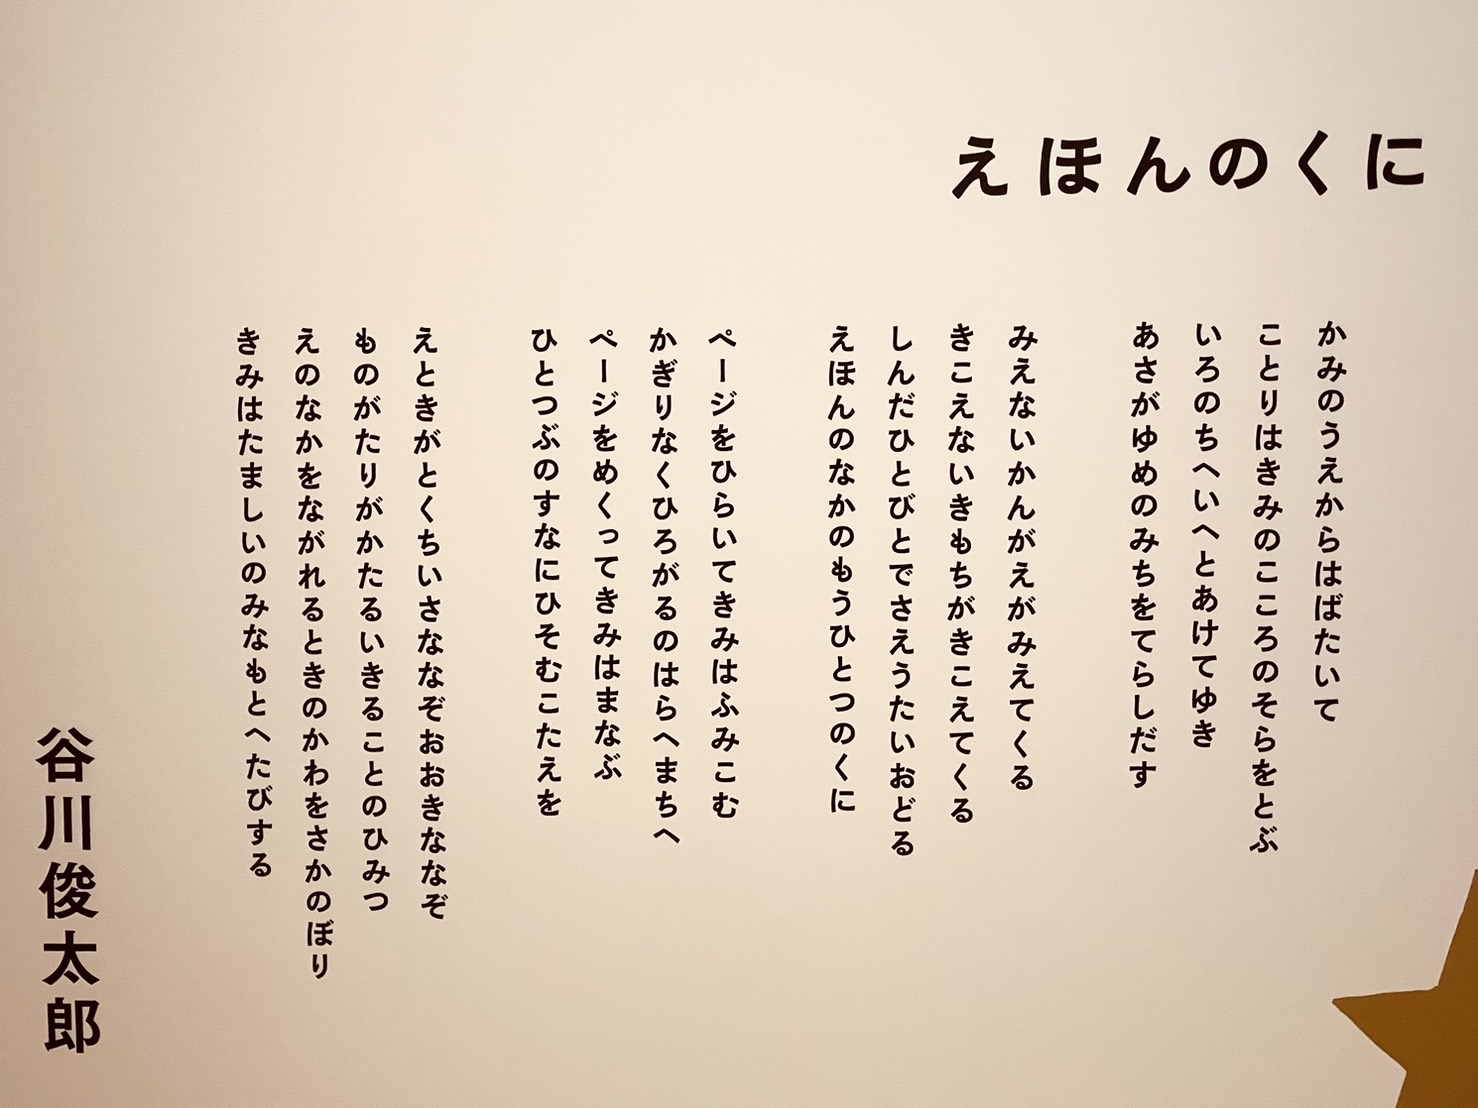 えほんのくに
かみのうえからはばたいて
ことりはきみのこころのそらをとぶ
いろのちへいへとあけてゆき
あさがゆめのみちをてらしだす
みえないかんがえがみえてくる
きこえないきもちがきこえてくる
しんだひとびとでさえうたいおどる
えほんのなかのもうひとつのくに
ページをひらいてきみはふみこむ
かぎりなくひろがるのはらへまちへ
ページをめくってきみはまなぶ
ひとつぶのすなにひそむこたえを
えときがとくちいさななぞおおきななぞ
ものがたりがかたるいきることのひみつ
えのなかをながれるときのかわをさかのぼり
きみはたましいのみなもとへたびする
谷川俊太郎